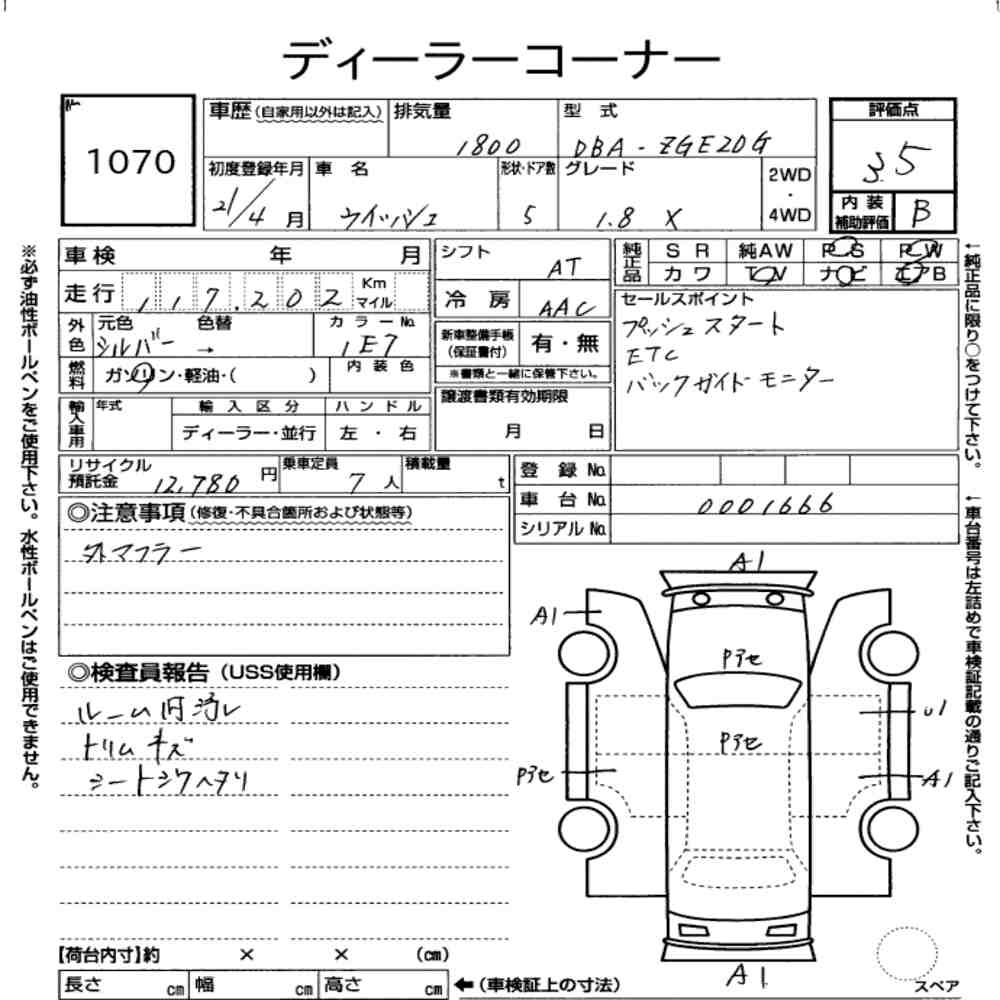 ディーラーコーナー
1070
車歴(自家用以外は記入)
排気量
1800
型 式
DBA - ZGE20G
評価点
3.5
初度登録年月
21/4月
車 名
ウイッシュ
形状・ドア数
5
グレード
1.8 X
2WD
・
4WD
内 装
補助評価
B
車検 年 月
走行 117.202 Km
マイル
外色
元色 色替
シルバー →
カラーNo.
1E7
燃料
ガソリン・軽油・( )
内 装 色
輸入車用
年式
輸 入 区 分
ディーラー・並行
ハ ン ド ル
左 ・ 右
シフト
AT
冷 房
AAC
新車整備手帳
(保証書付)
有・無
※書類と一緒に保管下さい。
譲渡書類有効期限
月 日
純正品
S R 純AW P S P W
カ ワ T V ナ ビ エアB
セールスポイント
プッシュスタート
ETC
バックガイドモニター
リサイクル
預託金 12,780 円
乗車定員
7 人
積載量
t
登 録 No.
車 台 No. 0001666
シリアル No.
◎注意事項(修復・不具合箇所および状態等)
外マフラー
◎検査員報告(USS使用欄)
ルーム内汚レ
トリムキズ
シートシワヘタリ
A1
A1
Pアセ
Pアセ
Pアセ
U1
A1
A1
スペア
【荷台内寸】約 × × (cm)
長さ cm 幅 cm 高さ cm
←(車検証上の寸法)
※必ず油性ボールペンをご使用下さい。水性ボールペンはご使用できません。
←純正品に限り○をつけて下さい。
←車台番号は左詰めで車検証記載の通りご記入下さい。